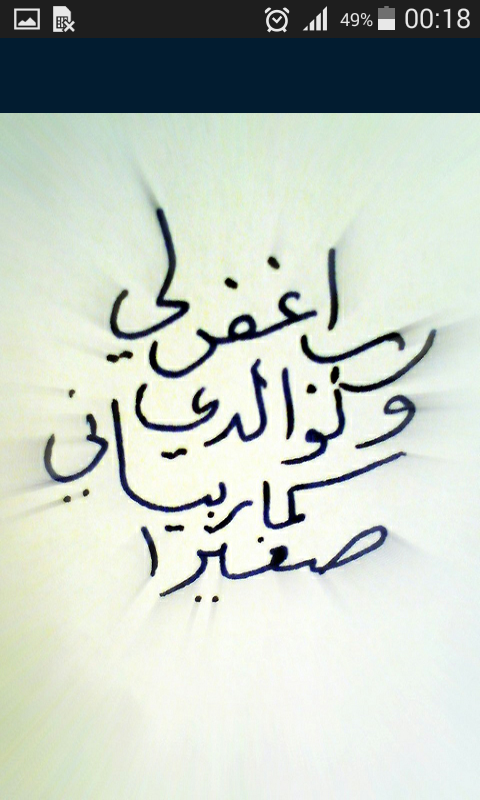 49% 00:18
رب اغفر لي
ولوالدي
كما ربياني
صغيرا